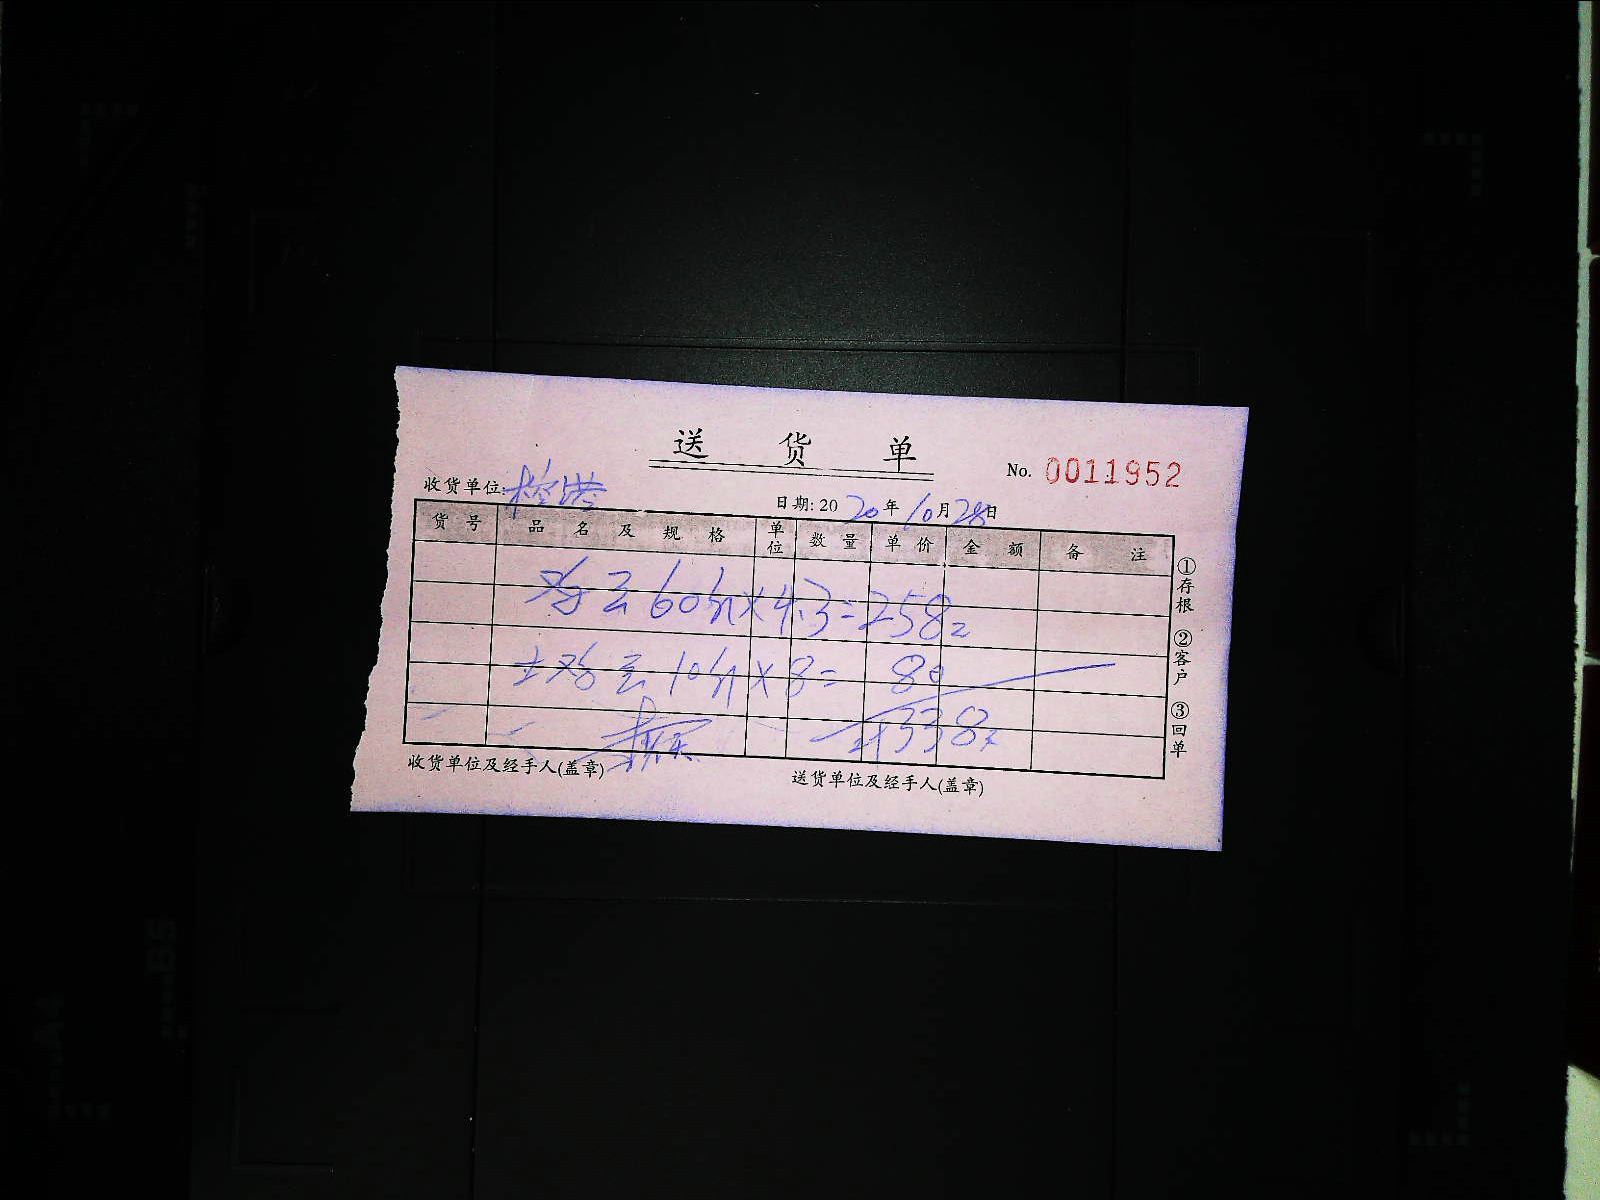 送 货 单
No. 0011952
收货单位:
日期: 2020年10月28日
货 号 品 名 及 规 格 单位 数 量 单 价 金 额 备 注
鸡 60斤×4.3=258
土鸡 10斤×8= 80
计338
收货单位及经手人(盖章) 送货单位及经手人(盖章)
①存根 ②客户 ③回单